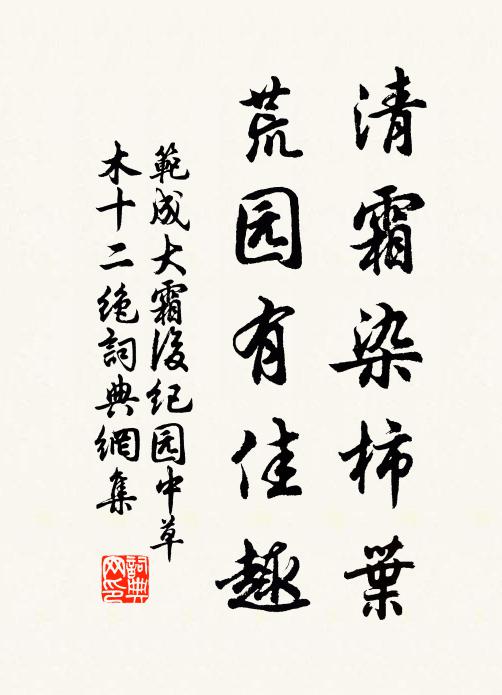 清霜染柿葉
荒园有佳趣
範成大霜後纪园中草
木十二绝詞典網集
詞典
网印